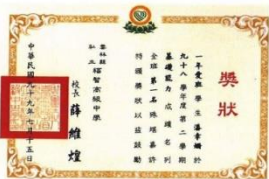 獎狀
一年愛班學生潘
九十八學年度第二學期
基礎能力成績名列
全班第一名殊堪嘉許
特頒獎狀以茲鼓勵
雲林縣
私立
福智高級中學
校長 薛維煌
中華民國九十九年七月十五日